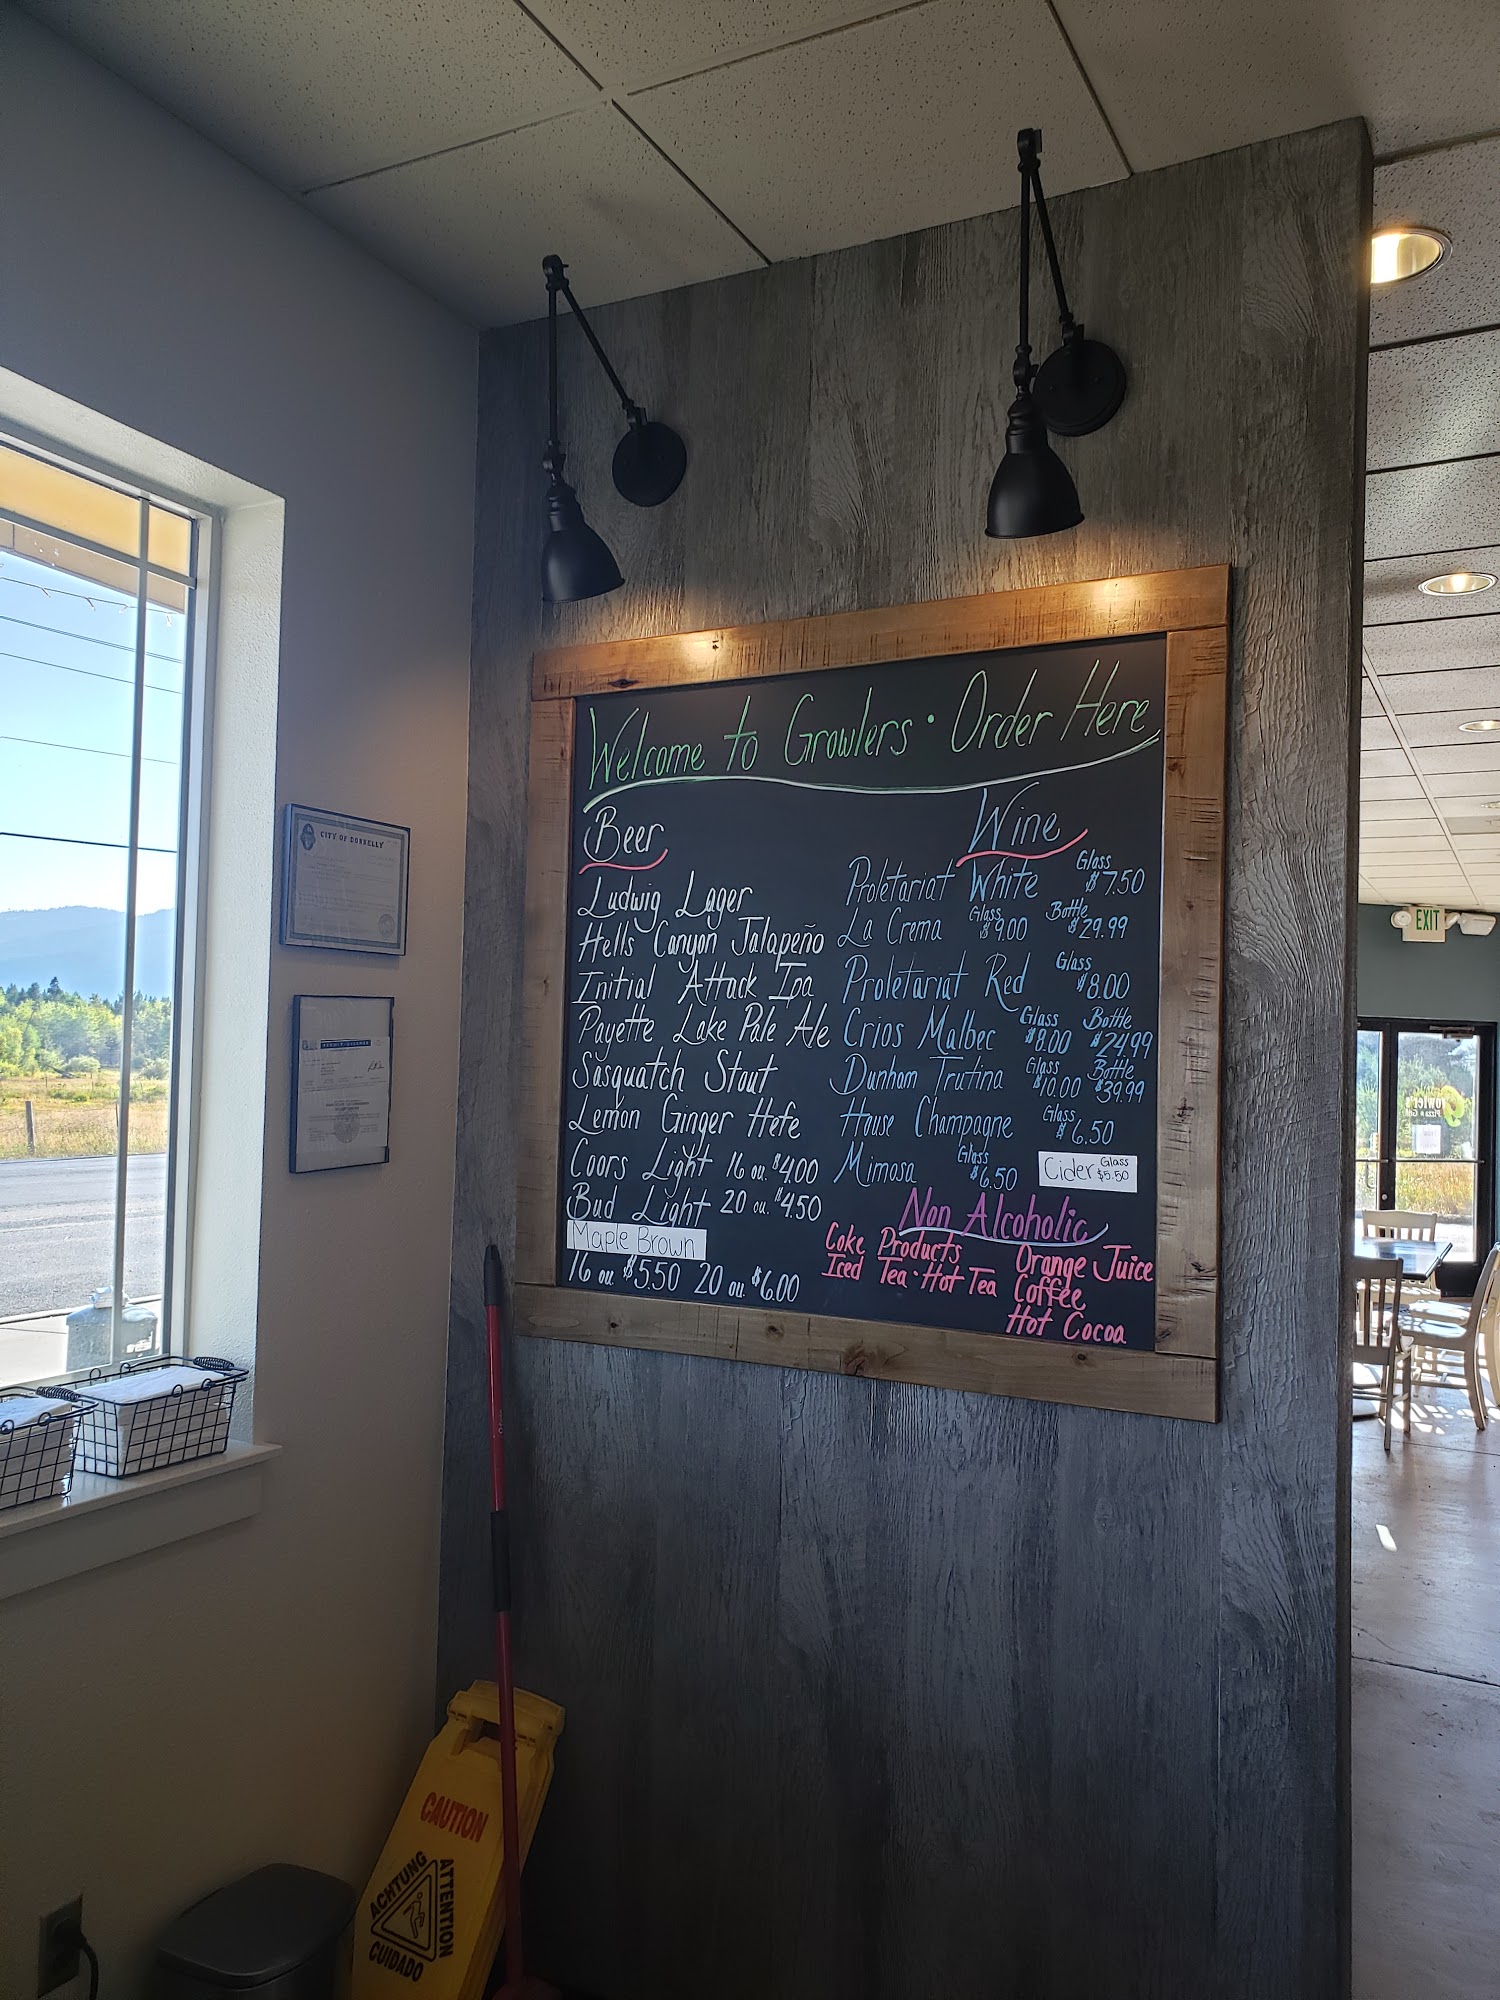 Welcome to Growlers • Order Here
Beer
Ludwig Lager
Hells Canyon Jalapeño
Initial Attack Ipa
Payette Lake Pale Ale
Sasquatch Stout
Lemon Ginger Hefe
Coors Light 16 ou. $4.00
Bud Light 20 ou. $4.50
Maple Brown
16 ou. $5.50 20 ou. $6.00
Wine
Proletariat White Glass $7.50
La Crema Glass $9.00 Bottle $29.99
Proletariat Red Glass $8.00
Crios Malbec Glass $8.00 Bottle $24.99
Dunham Trutina Glass $10.00 Bottle $39.99
House Champagne Glass $6.50
Mimosa Glass $6.50
Cider Glass $5.50
Non Alcoholic
Coke Products
Iced Tea • Hot Tea
Orange Juice
Coffee
Hot Cocoa
CITY OF DONNELLY
EXIT
CAUTION
ACHTUNG
ATTENTION
CUIDADO